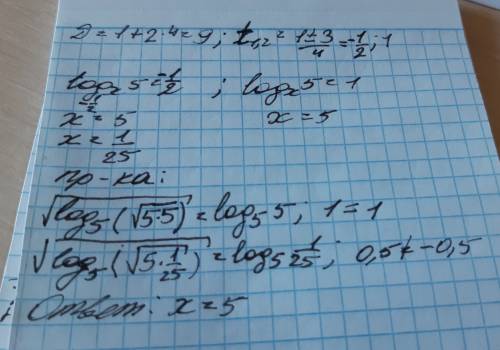 D = 1+2·4 = 9; t₁,₂ = (1±3)/4 = -1/2; 1
logₓ5 = -1/2 ; logₓ5 = 1
x^(-1/2) = 5 x = 5
x = 1/25
пр-ка:
√(log₅(√(5·5))) = log₅5; 1 = 1
√(log₅(√(5·1/25))) = log₅ 1/25; 0,5 ≠ -0,5
Ответ: x = 5